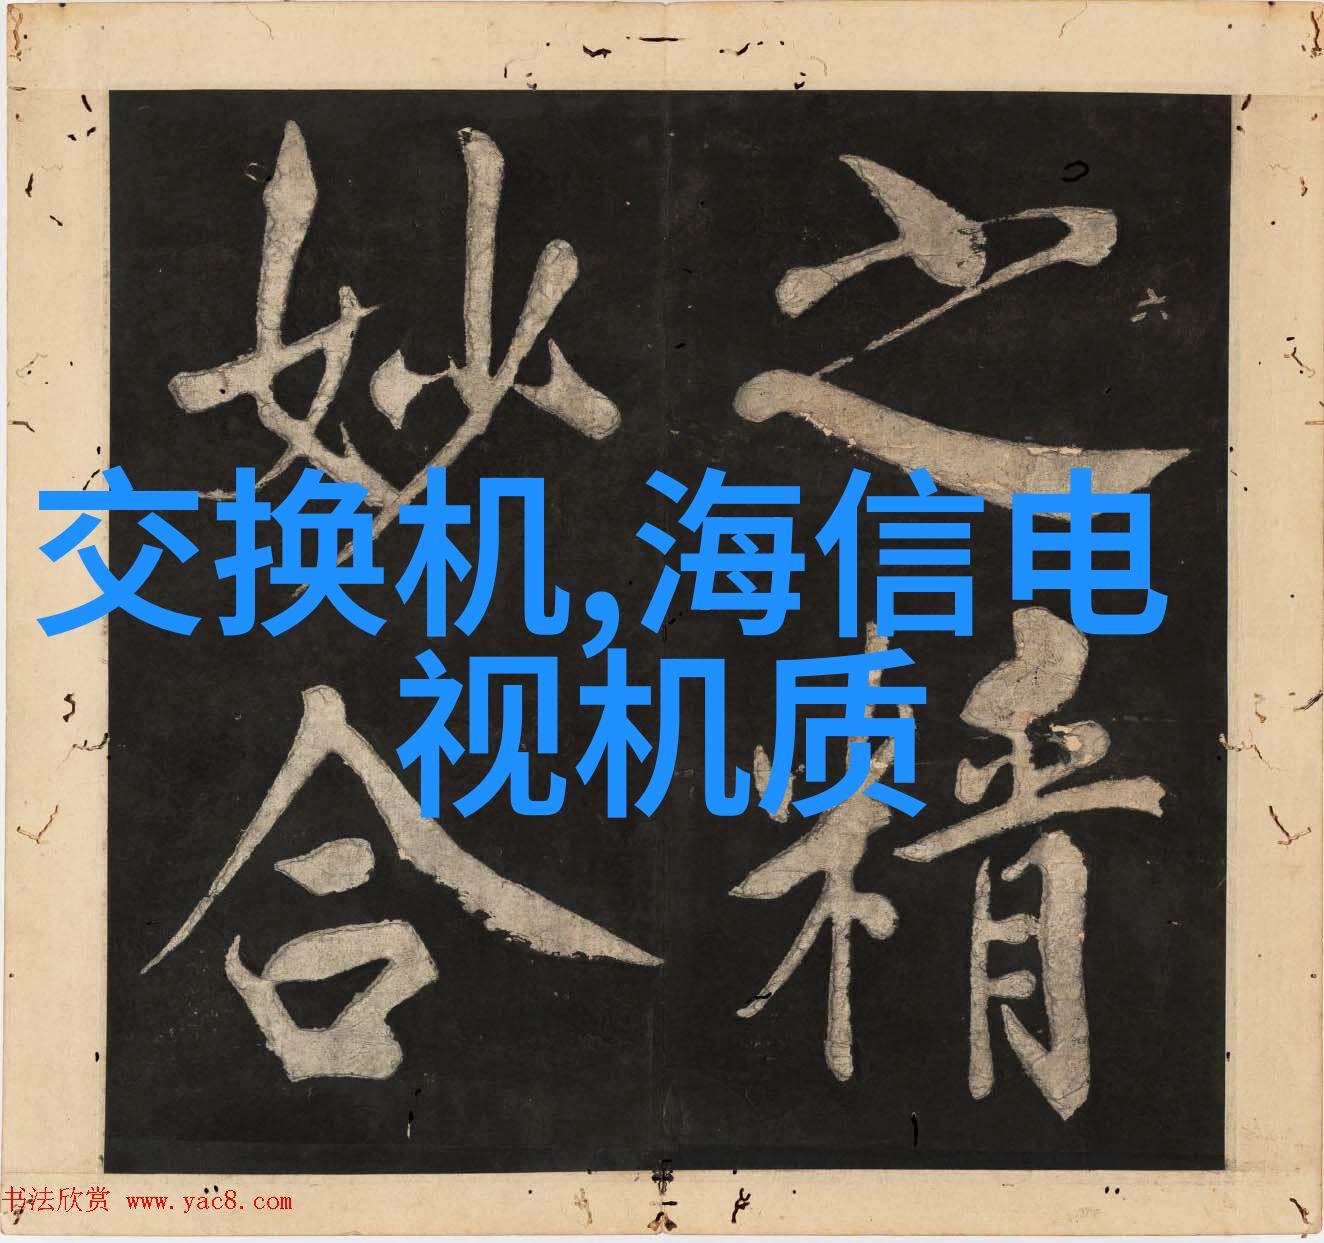 之精
妙合
六
交换机,海信电
视机质
书法欣赏 www.yac8.com